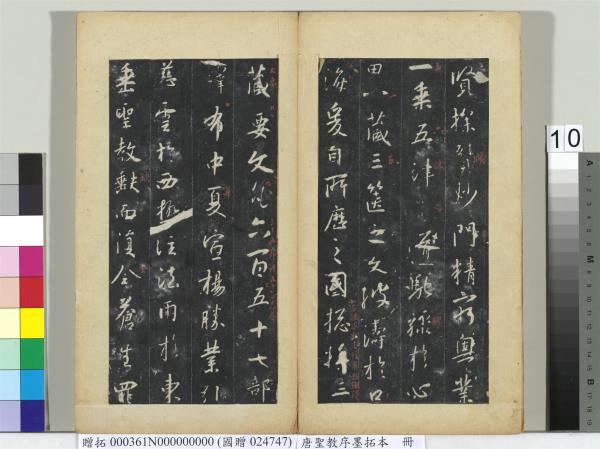 賢探賾妙門精窮奧業
一乘五律馳驟於心
田八藏三篋之文波濤於口
海爰自所歷之國總將三
藏要文凡六百五十七部
譯布中夏宣揚勝業引
慈雲於西極注法雨於東
垂聖教缺而復全蒼生罪
10
贈拓 000361N000000000 (國贈 024747)
唐聖教序墨拓本 冊